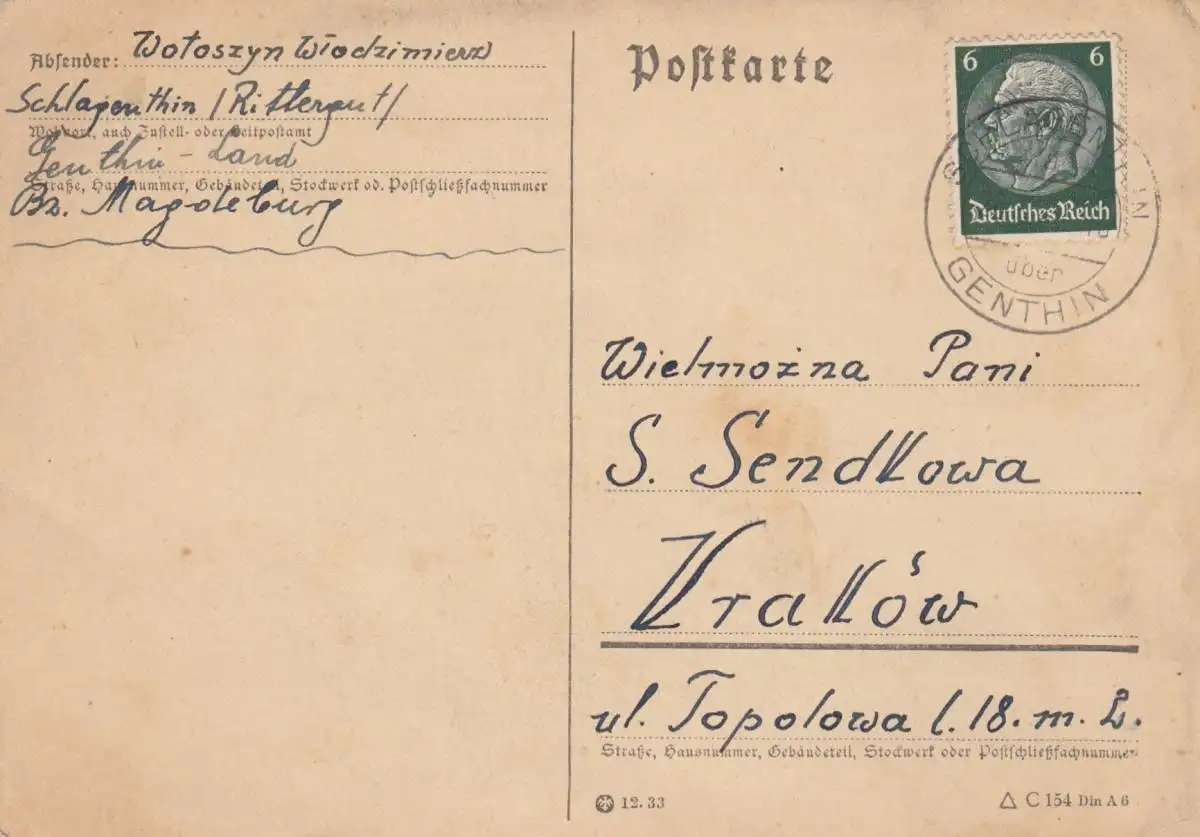 Absender: Wołoszyn Włodzimierz
Schlagenthin /Rittergut/
Wohnort, auch Zustell- oder Leitpostamt
Genthin-Land
Straße, Hausnummer, Gebäudeteil, Stockwerk od. Postschließfachnummer
Bz. Magdeburg
Postkarte
6 6
Deutsches Reich
über
GENTHIN
Wielmożna Pani
S. Sendkowa
Kraków
ul. Topolowa l. 18. m. 2.
Straße, Hausnummer, Gebäudeteil, Stockwerk oder Postschließfachnummer
12. 33
C 154 Din A 6